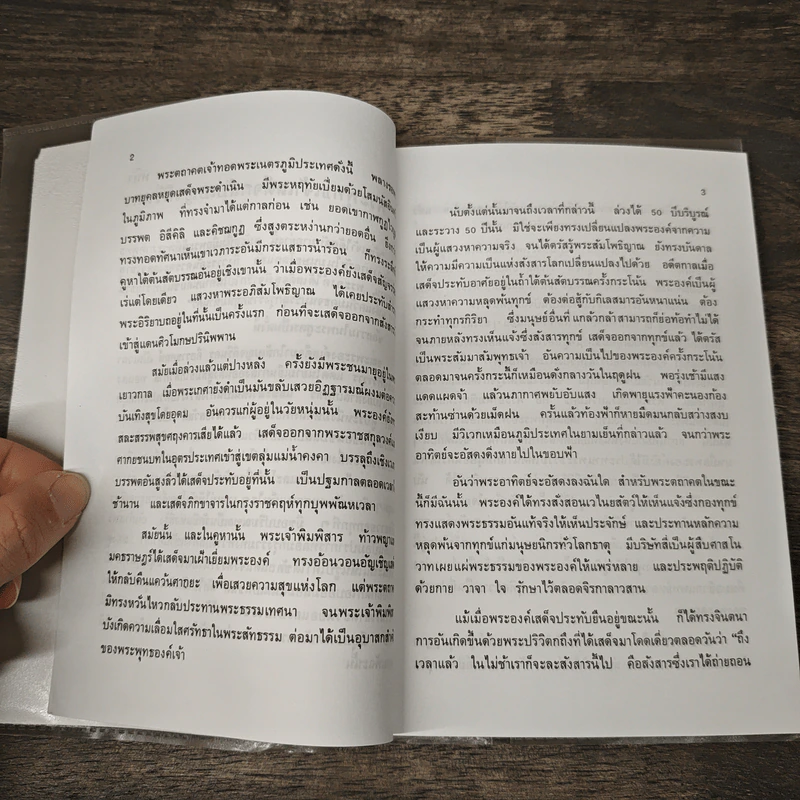 2
พระตถาคตเจ้าทอดพระเนตรภูมิประเทศดั่งนี้ พลาง
บาทยุคลหยุดเสด็จพระดำเนิน มีพระหฤทัยเปี่ยมด้วยโสมนัส
ในภูมิภาพ ที่ทรงจำมาได้แต่กาลก่อน เช่น ยอดเขากาฬกูฏ
บรรพต อิสีคิลิ และคิชฌกูฏ ซึ่งสูงตระหง่านกว่ายอดอื่น
ทรงทอดทัศนาเห็นเขาเวภาระอันมีกระแสธารน้ำร้อน ก็ทรง
คูหาใต้ต้นสัตบรรณอันอยู่เชิงเขานั้น ว่าเมื่อพระองค์ยังเสด็จ
เร่แต่โดยเดียว แสวงหาพระอภิสัมโพธิญาณ ได้เคยประทับ
พระอิริยาบถอยู่ในที่นั้นเป็นครั้งแรก ก่อนที่จะเสด็จออกจาก
เข้าสู่แดนศิวโมกษปรินิพพาน
สมัยเมื่อล่วงแล้วแต่ปางหลัง ครั้งยังมีพระชนมายุอยู่ใน
เยาวกาล เมื่อพระเกศายังดำเป็นมันขลับเสวยอิฏฐารมณ์
บันเทิงสุขโดยอุดม อันควรแก่ผู้อยู่ในวัยหนุ่มนั้น พระองค์
สละสรรพสุขศฤงคารเสียได้แล้ว เสด็จออกจากราชสกุลวงศ์
ศากยชนบทในอุตรประเทศเข้าสู่เขตลุ่มแม่น้ำคงคา บรรลุถึงเชิง
บรรพตอันสูงลิ่วได้เสด็จประทับอยู่ที่นั้น เป็นปฐมกาลตลอดเวลา
ช้านาน และเสด็จภิกขาจารในกรุงราชคฤห์ทุกบุพพัณหเวลา
สมัยนั้น และในคูหานั้น พระเจ้าพิมพิสาร ท้าวพญา
มคธราษฎร์ได้เสด็จมาเฝ้าเยี่ยมพระองค์ ทรงอ้อนวอนอัญเชิญ
ให้กลับคืนแคว้นศากยะ เพื่อเสวยความสุขแห่งโลก แต่พระ
มิทรงหวั่นไหวกลับประทานพระธรรมเทศนา จนพระเจ้าพิมพิ
บังเกิดความเลื่อมใสศรัทธาในพระสัทธรรม ต่อมาได้เป็นอุบาสก
ของพระพุทธองค์เจ้า
3
นับตั้งแต่นั้นมาจนถึงเวลาที่กล่าวนี้ ล่วงได้ 50 ปีบริบูรณ์
และระวาง 50 ปีนั้น มิใช่จะเพียงทรงเปลี่ยนแปลงพระองค์จากความ
เป็นผู้แสวงหาความจริง จนได้ตรัสรู้พระสัมโพธิญาณ ยังทรงบันดาล
ให้ความมีความเป็นแห่งสังสารโลกเปลี่ยนแปลงไปด้วย อดีตกาลเมื่อ
เสด็จประทับอาศัยอยู่ในถ้ำใต้ต้นสัตบรรณครั้งกระโน้น พระองค์เป็นผู้
แสวงหาความหลุดพ้นทุกข์ ต้องต่อสู้กับกิเลสมารอันหนาแน่น ต้อง
กระทำทุกกิริยา ซึ่งมนุษย์อื่นที่ แกล้วกล้าสามารถก็ย่อท้อทำไม่ได้
จนภายหลังทรงเห็นแจ้งซึ่งสังสารทุกข์ เสด็จออกจากทุกข์แล้ว ได้ตรัส
เป็นพระสัมมาสัมพุทธเจ้า อันความเป็นไปของพระองค์ครั้งกระโน้น
ตลอดมาจนครั้งกระนี้ก็เหมือนดั่งกลางวันในฤดูฝน พอรุ่งเช้ามีแสง
แดดแผดจ้า แล้วนภากาศพยับอับแสง เกิดพายุแรงฟ้าคะนองก้อง
สะท้านซ่านด้วยเม็ดฝน ครั้นแล้วท้องฟ้าก็หายมืดมนกลับสว่างสงบ
เงียบ มีวิเวกเหมือนภูมิประเทศในยามเย็นที่กล่าวแล้ว จนกว่าพระ
อาทิตย์จะอัสดงดิ่งหายไปในขอบฟ้า
อันว่าพระอาทิตย์จะอัสดงลงฉันใด สำหรับพระตถาคตในขณะ
นี้ก็มีฉันนั้น พระองค์ได้ทรงสั่งสอนเวไนยสัตว์ให้เห็นแจ้งซึ่งกองทุกข์
ทรงแสดงพระธรรมอันแท้จริงให้เห็นประจักษ์ และประทานหลักความ
หลุดพ้นจากทุกข์แก่มนุษยนิกรทั่วโลกธาตุ มีบริษัทที่เป็นผู้สืบศาสโน
วาทเผยแผ่พระธรรมของพระองค์ให้แพร่หลาย และประพฤติปฏิบัติ
ด้วยกาย วาจา ใจ รักษาไว้ตลอดจิรกาลาวสาน
แม้เมื่อพระองค์เสด็จประทับยืนอยู่ขณะนั้น ก็ได้ทรงจินตนา
การอันเกิดขึ้นด้วยพระปริวิตกถึงที่ได้เสด็จมาโดดเดี่ยวตลอดวันว่า “ถึง
เวลาแล้ว ในไม่ช้าเราก็จะละสังสารนี้ไป คือสังสารซึ่งเราได้ถ่ายถอน